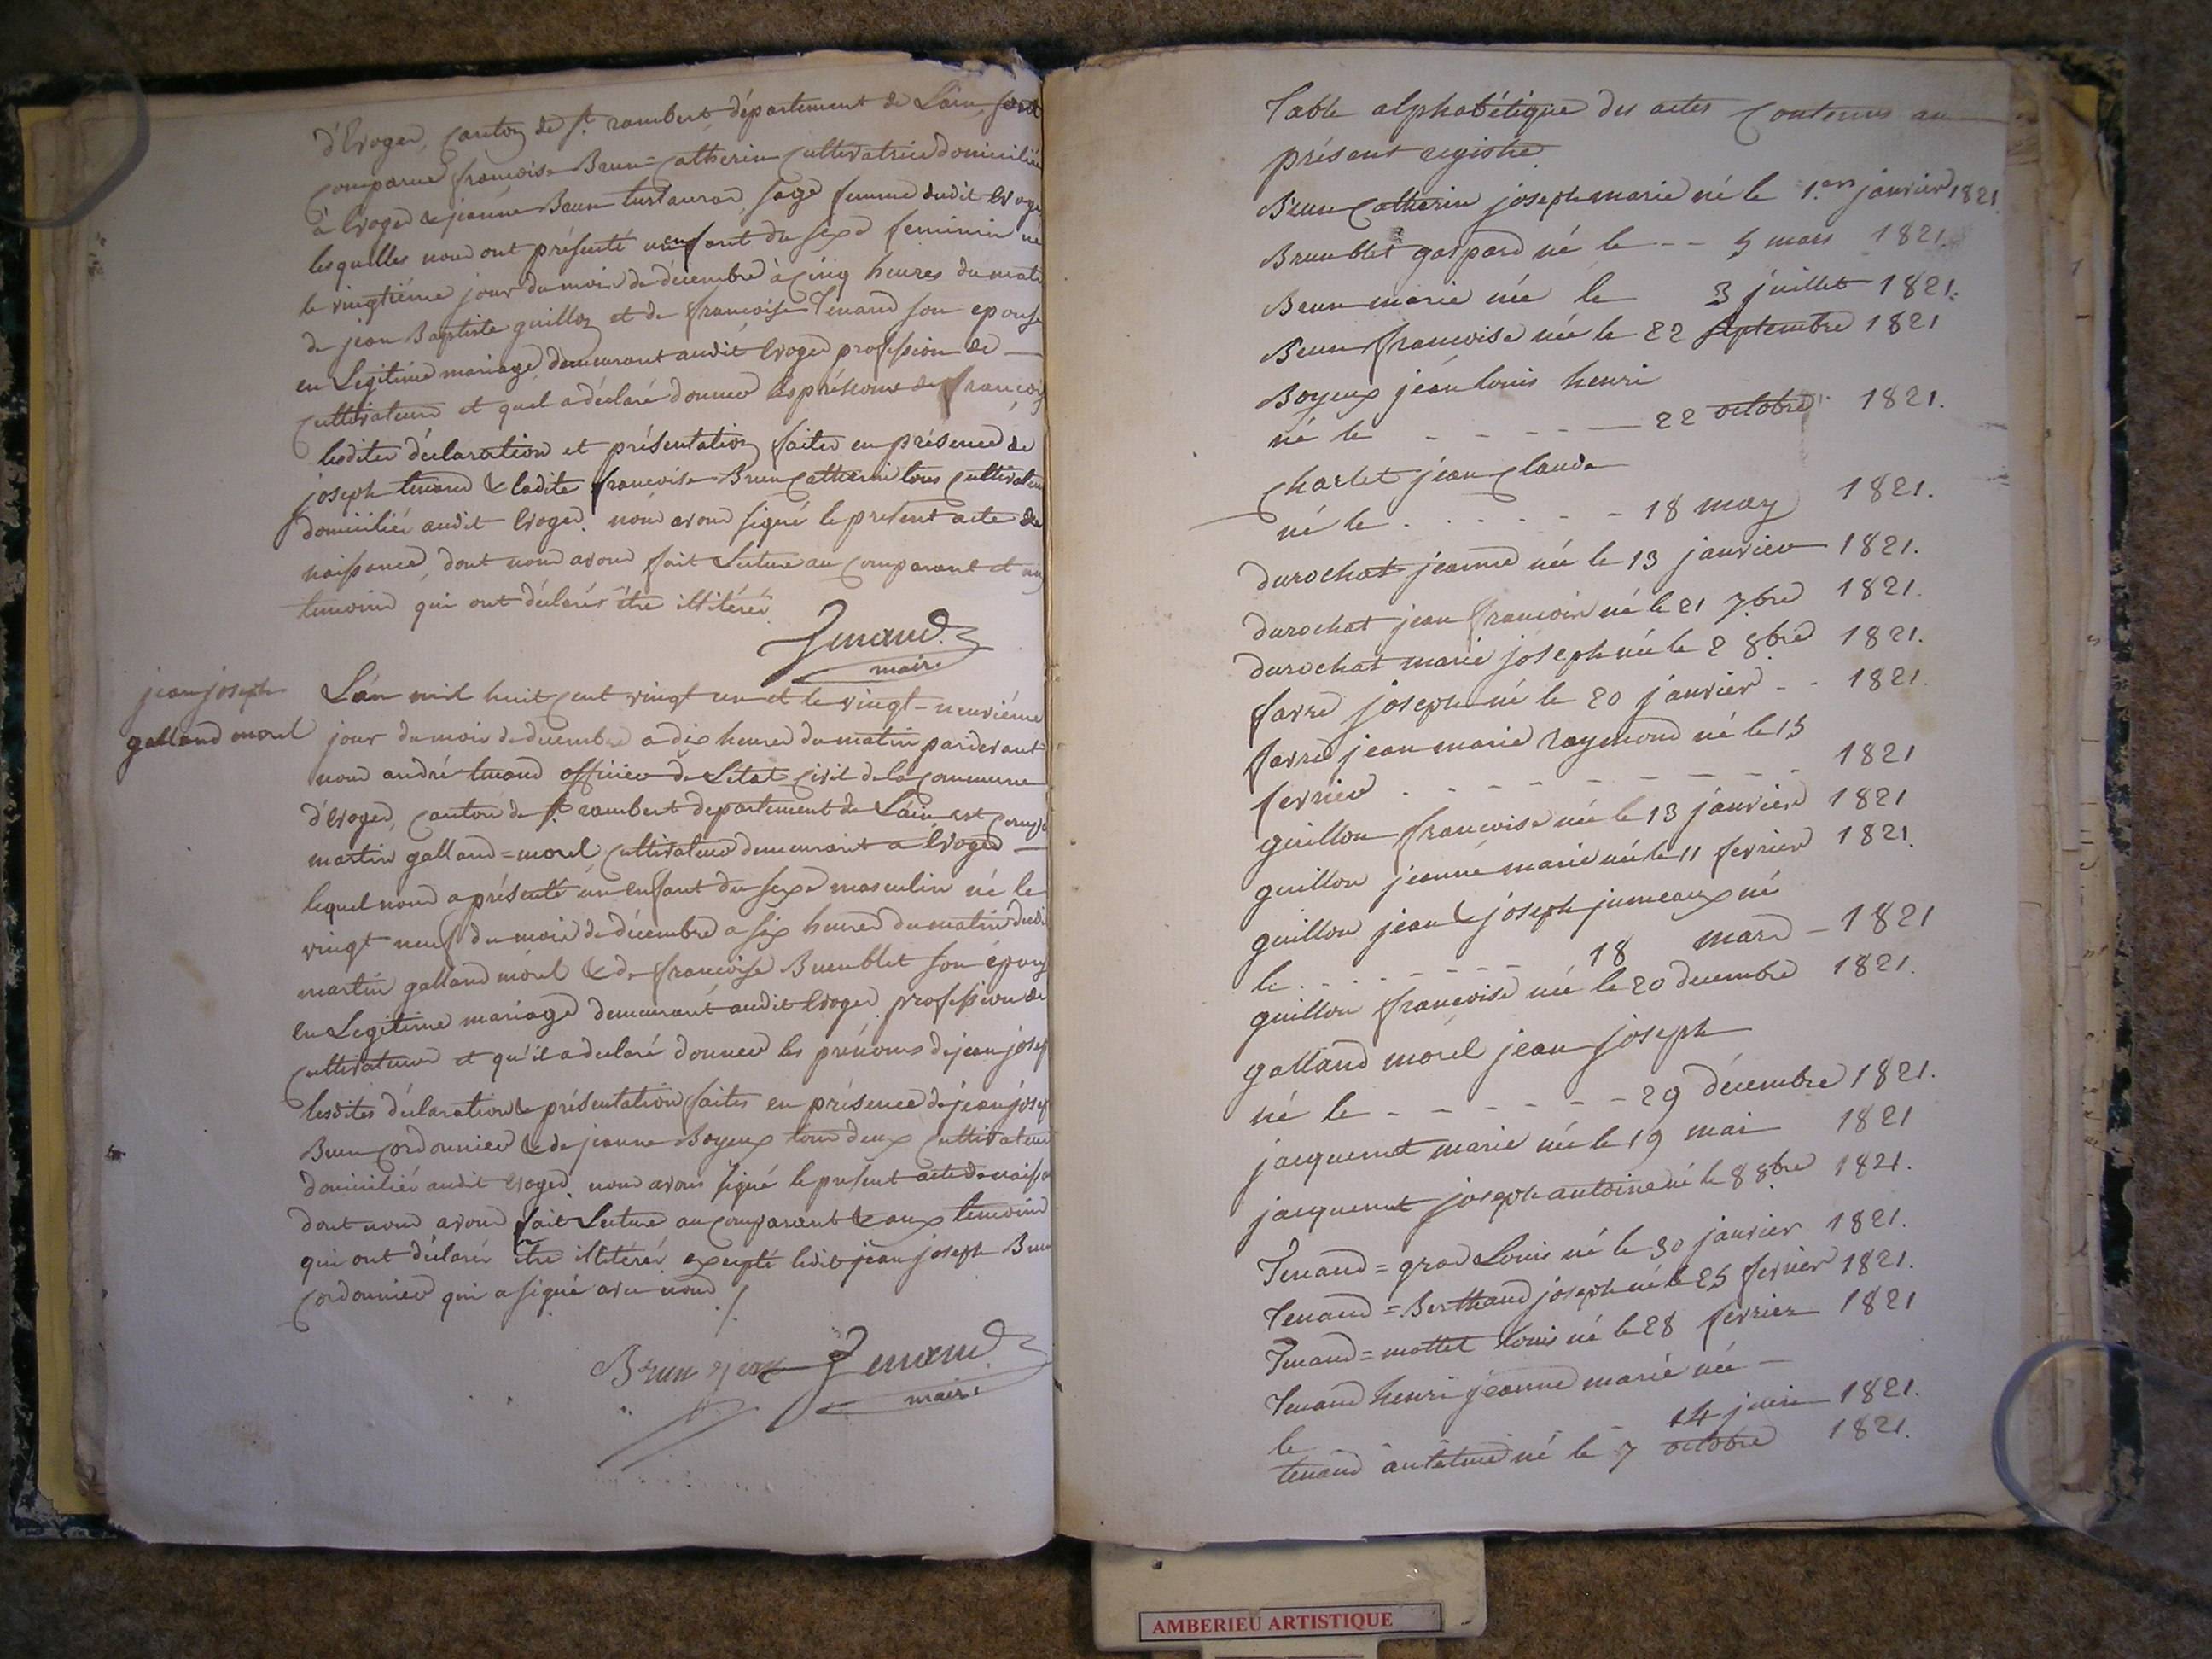 d'Evoges, canton de St rambert département de Lain, sont
comparues françoise Brun=Catherin Cultivatrice domiciliée
à Evoges & jeanne Brun, sage femme dudit Evoges
lesquelles nous ont présenté un enfant du sexe feminin né
le vingtiéme jour du mois de décembre à cinq heures du mati
de jean Baptiste guillon et de françoise Tenand son epouse
en Legitime mariage, demeurant audit Evoges profession de —
Cultivateur et quel a déclaré donner les prénoms de françoise
lesdites déclaration et présentation faites en présence de
joseph tenand & ladite françoise Brun Catherin tous cultivateurs
domiciliés audit Evoges. nous avons signé le présent acte de
naissance, dont nous avons fait Lecture au comparant et aux
temoins qui ont déclarés être illitérés
Tenand
maire
jean joseph
galland morel
L'an mil huit cent vingt un et le vingt-neuviéme
jour du mois de decembre a dix heures du matin pardevant
nous andré tenand officier de Létat civil de la commune
d'Evoges, canton de St rambert departement de Lain est comparu
martin galland=morel cultivateur demeurant a Evoges —
lequel nous a présenté un enfant du sexe masculin né le
vingt neuf du mois de décembre a six heures du matin dudit
martin galland morel & de françoise Brunblet son épouse
en Legitime mariage demeurant audit Evoges. profession de
cultivateur et qu'il a declaré donner les prénoms de jean joseph
lesdites déclaration & présentation faites en présence de jean joseph
Brun cordonnier & de jeanne Boyeux tous deux cultivateurs
domiciliés audit Evoges. nous avons signé le present acte de naissa
dont nous avons fait Lecture au comparant & aux temoins
qui ont déclarés être illitérés excepté ledit jean joseph Brun
cordonnier qui a signé avec nous /.
Brun jean Tenand
maire
Table alphabétique des actes contenus au
présent registre
Brun Catherin joseph marie né le 1.er janvier 1821
Brunblet gaspard né le -- 5 mars 1821.
Brun marie née le 3 juillet 1821.
Brun françoise née le 22 septembre 1821
Boyeux jean louis henri
né le - - - - - 22 octobre 1821.
Charlet jean Claude
né le . - - - - - 18 may 1821.
durochat jeanne née le 13 janvier 1821.
durochat jean françois né le 21 7.bre 1821.
durochat marie joseph née le 2 8bre 1821.
favre joseph né le 20 janvier - - 1821.
favre jean marie raymond né le 15
fevrier . - - - - - - 1821
guillon françoise née le 13 janvier 1821
guillon jeanne marie née le 11 fevrier 1821.
guillon jean & joseph jumeaux né
le . . - - - - - 18 mars - 1821
guillon françoise née le 20 decembre 1821.
galland morel jean joseph
né le - - - - - - 29 décembre 1821.
jacquemet marie née le 19 mai 1821
jacquemet joseph antoine né le 8 8bre 1821.
Tenand = gros Louis né le 30 janvier 1821.
Tenand = Berthaud joseph né le 25 fevrier 1821.
Tenand = mottet louis né le 28 fevrier 1821
Tenand henri jeanne marie née —
le - - - 14 juin 1821.
tenand antelme né le 7 octobre 1821.
AMBERIEU ARTISTIQUE